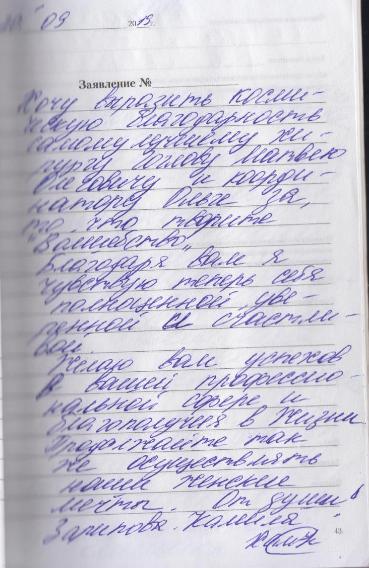 09 2019
Заявление №
Хочу выразить косми-
ческую благодарность
самому лучшему хи-
рургу Матвею
Олеговичу и коорди-
натору Ольге за,
то, что творите
"Волшебство"
Благодаря вам я
чувствую теперь себя
полноценной, уве-
ренной и счастли-
вой.
Желаю вам успехов
в вашей профессио-
нальной сфере и
благополучия в жизни
Продолжайте так
же осуществлять
наши женские
мечты. От души
Зарипова Камилла
43